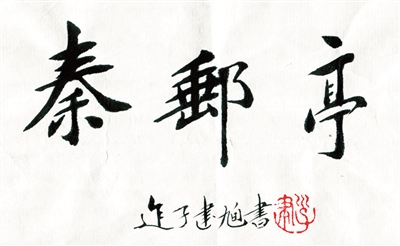 秦郵亭
莲子建旭書